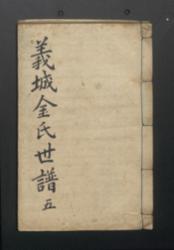 義城金氏世譜 五